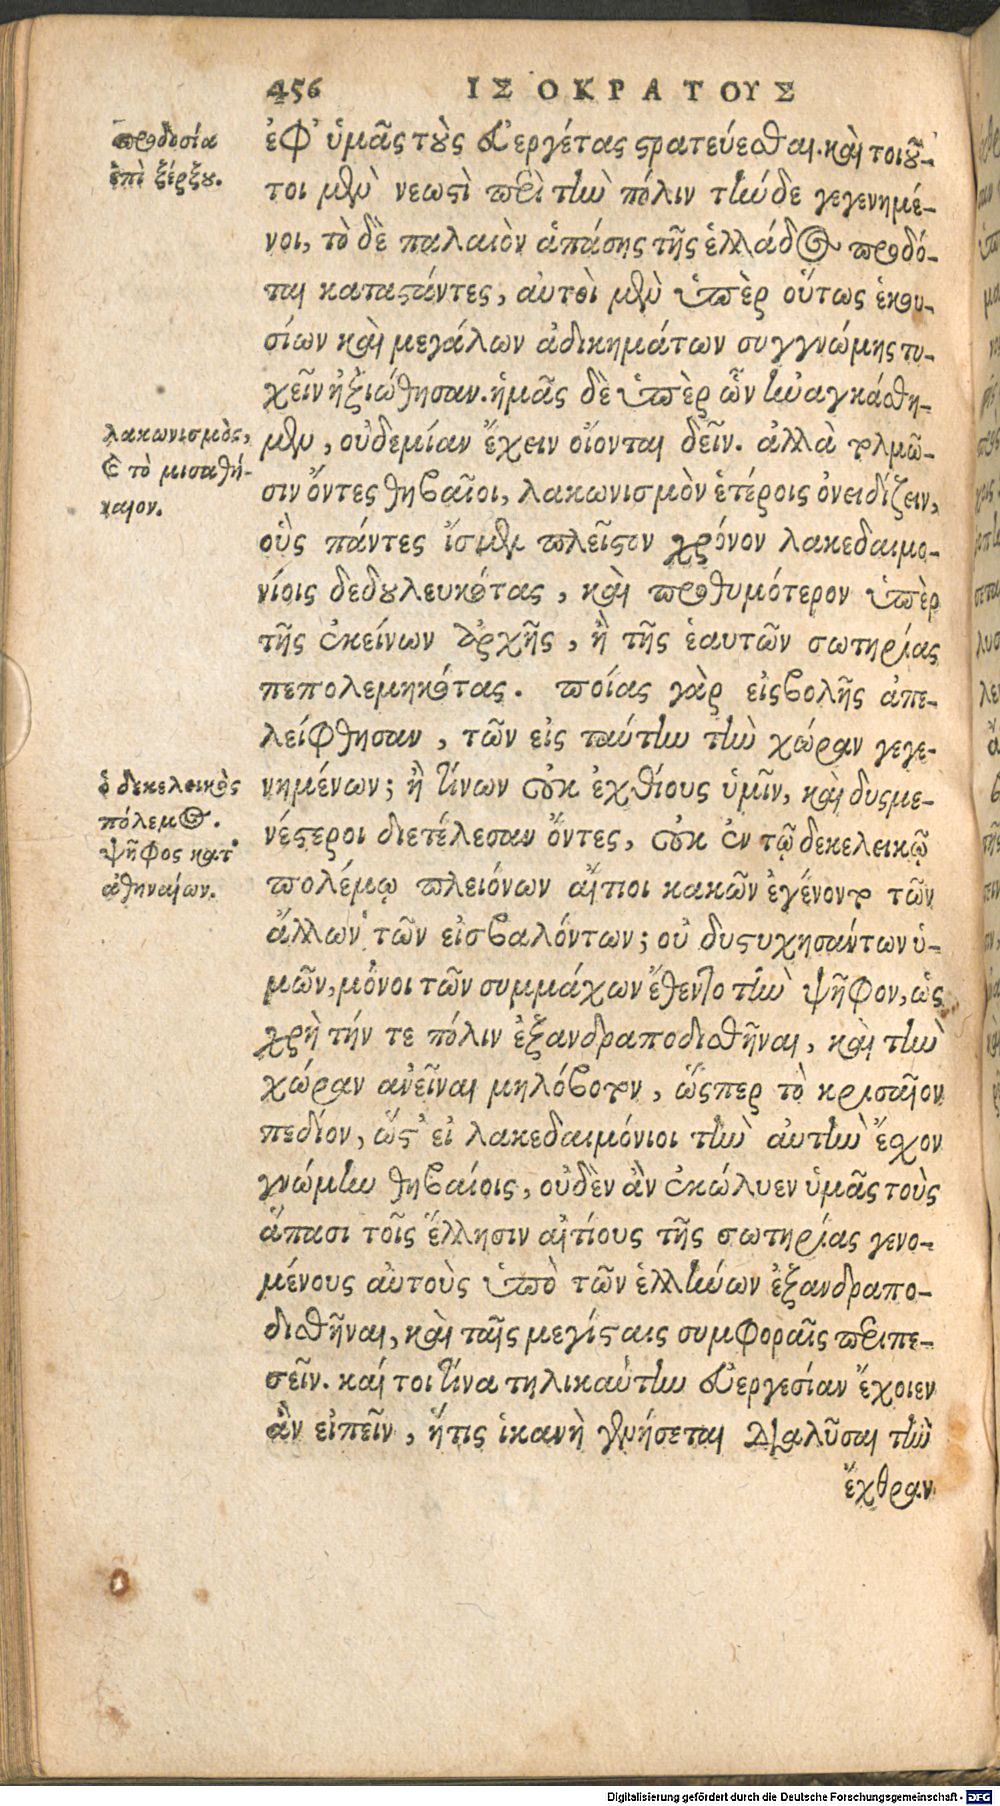 456 ΙΣΟΚΡΑΤΟΥΣ
προδοσία
ἐπὶ ξέρξου.
ἐφ' ὑμᾶς τοὺς εὐεργέτας στρατεύεσθαι. καὶ τοιοῦ-
τοι μὲν νεωστὶ περὶ τὴν πόλιν τήνδε γεγενημέ-
νοι, τὸ δὲ παλαιὸν ἁπάσης τῆς ἑλλάδος προδό-
ται καταστάντες, αὐτοὶ μὲν ὑπὲρ οὕτως ἑκου-
σίων καὶ μεγάλων ἀδικημάτων συγγνώμης τυ-
χεῖν ἠξιώθησαν. ἡμᾶς δὲ ὑπὲρ ὧν ἠναγκάσθη-
λακωνισμὸς,
καὶ τὸ μισαθή-
ναιον.
μεν, οὐδεμίαν ἔχειν οἴονται δεῖν. ἀλλὰ τολμῶ-
σιν ὄντες θηβαῖοι, λακωνισμὸν ἑτέροις ὀνειδίζειν,
οὓς πάντες ἴσμεν πλεῖστον χρόνον λακεδαιμο-
νίοις δεδουλευκότας, καὶ προθυμότερον ὑπὲρ
τῆς ἐκείνων ἀρχῆς, ἢ τῆς ἑαυτῶν σωτηρίας
πεπολεμηκότας. ποίας γὰρ εἰσβολῆς ἀπε-
λείφθησαν, τῶν εἰς ταύτην τὴν χώραν γεγε-
ὁ δεκελεικὸς
πόλεμος.
ψῆφος κατ'
ἀθηναίων.
νημένων; ἢ τίνων οὐκ ἐχθίους ὑμῖν, καὶ δυσμε-
νέστεροι διετέλεσαν ὄντες, οὐκ ἐν τῷ δεκελεικῷ
πολέμῳ πλειόνων αἴτιοι κακῶν ἐγένοντο τῶν
ἄλλων τῶν εἰσβαλόντων; οὐ δυστυχησάντων ὑ-
μῶν, μόνοι τῶν συμμάχων ἔθεντο τὴν ψῆφον, ὡς
χρὴ τήν τε πόλιν ἐξανδραποδισθῆναι, καὶ τὴν
χώραν ἀνεῖναι μηλόβοτον, ὥσπερ τὸ κρισαῖον
πεδίον, ὥστ' εἰ λακεδαιμόνιοι τὴν αὐτὴν ἔσχον
γνώμην θηβαίοις, οὐδὲν ἂν ἐκώλυεν ὑμᾶς τοὺς
ἅπασι τοῖς ἕλλησιν αἰτίους τῆς σωτηρίας γενο-
μένους αὐτοὺς ὑπὸ τῶν ἑλλήνων ἐξανδραπο-
δισθῆναι, καὶ ταῖς μεγίσταις συμφοραῖς περιπε-
σεῖν. καί τοι τίνα τηλικαύτην εὐεργεσίαν ἔχοιεν
ἂν εἰπεῖν, ἥτις ἱκανὴ γενήσεται διαλῦσαι τὴν
ἔχθραν
Digitalisierung gefördert durch die Deutsche Forschungsgemeinschaft - DFG